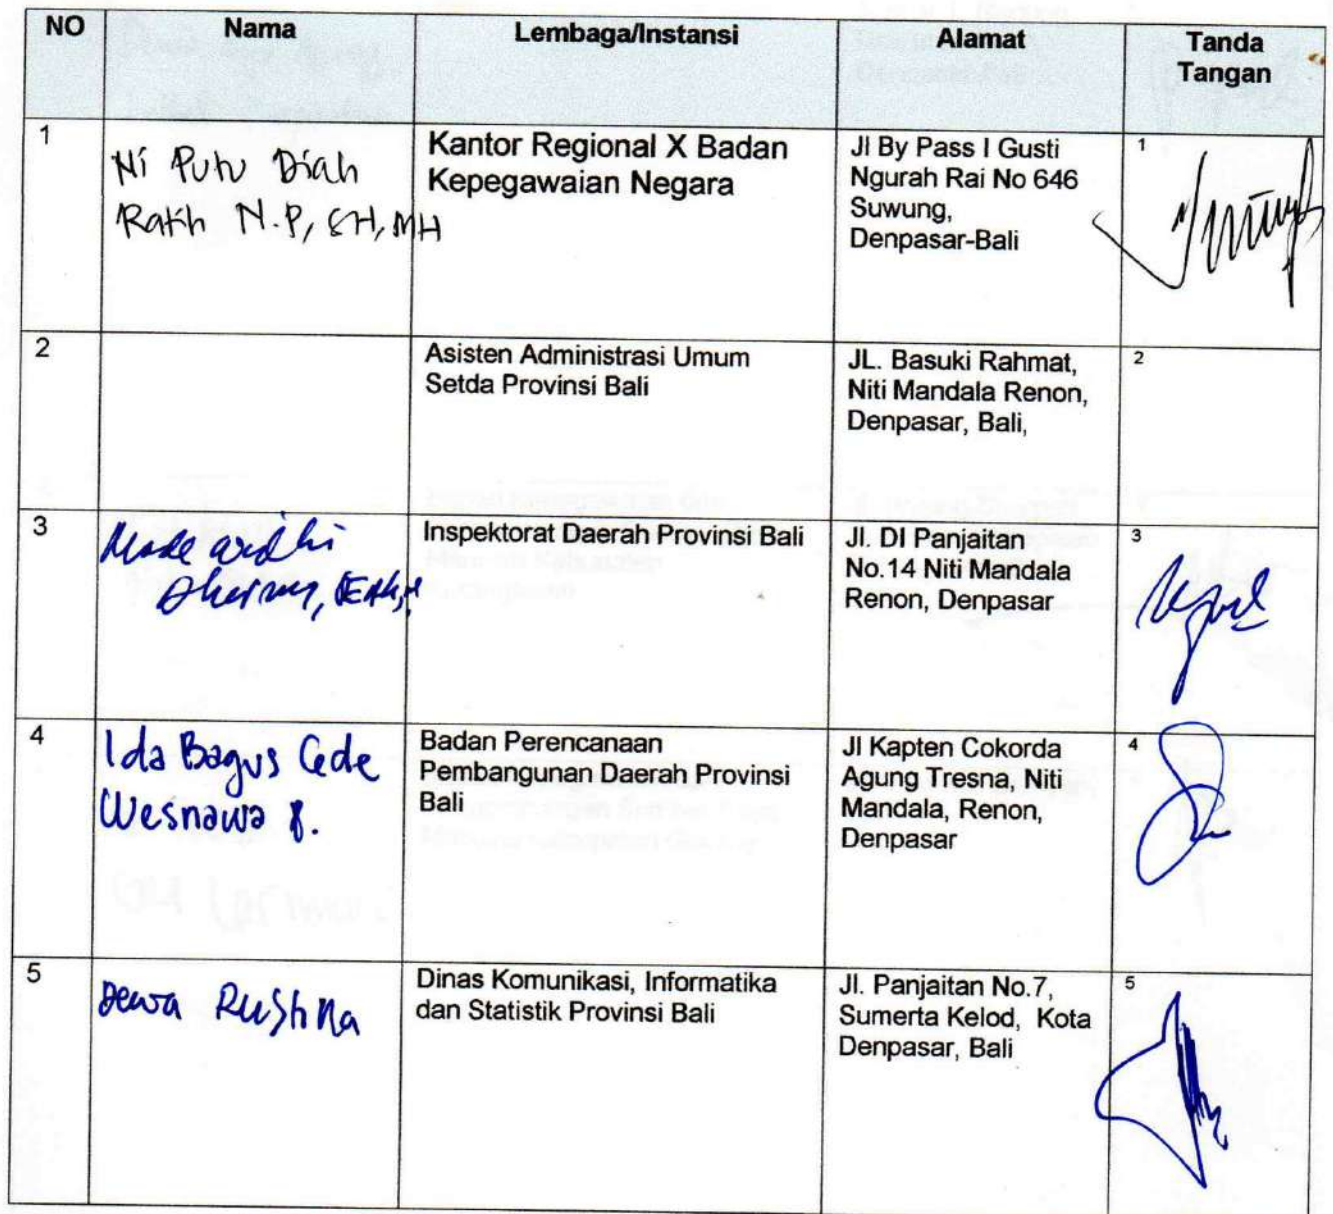 NO Nama Lembaga/Instansi Alamat Tanda
Tangan
1 Ni Putu Diah
Ratih N.P, SH, MH
Kantor Regional X Badan
Kepegawaian Negara
Jl By Pass I Gusti
Ngurah Rai No 646
Suwung,
Denpasar-Bali
1
2
Asisten Administrasi Umum
Setda Provinsi Bali
JL. Basuki Rahmat,
Niti Mandala Renon,
Denpasar, Bali,
2
3 Made
Inspektorat Daerah Provinsi Bali
Jl. DI Panjaitan
No.14 Niti Mandala
Renon, Denpasar
3
4 Ida Bagus Gede
Wesnawa
Badan Perencanaan
Pembangunan Daerah Provinsi
Bali
Jl Kapten Cokorda
Agung Tresna, Niti
Mandala, Renon,
Denpasar
4
5 Dewa
Dinas Komunikasi, Informatika
dan Statistik Provinsi Bali
Jl. Panjaitan No.7,
Sumerta Kelod, Kota
Denpasar, Bali
5